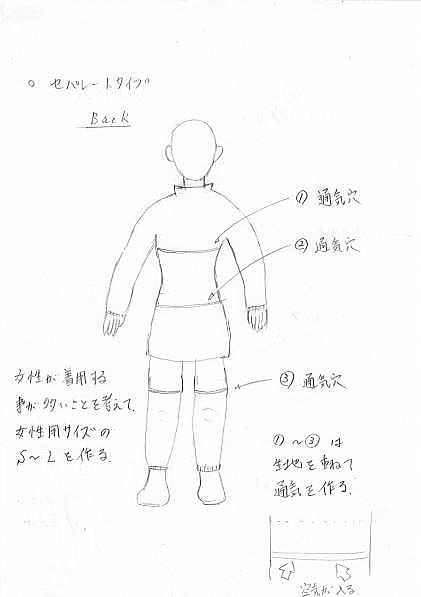 ○ セパレートタイプ
Back
① 通気穴
② 通気穴
③ 通気穴
女性が着用する
事が多いことを考えて、
女性用サイズの
S～Lを作る.
①～③は
生地を重ねて
通気を作る.
空気が入る